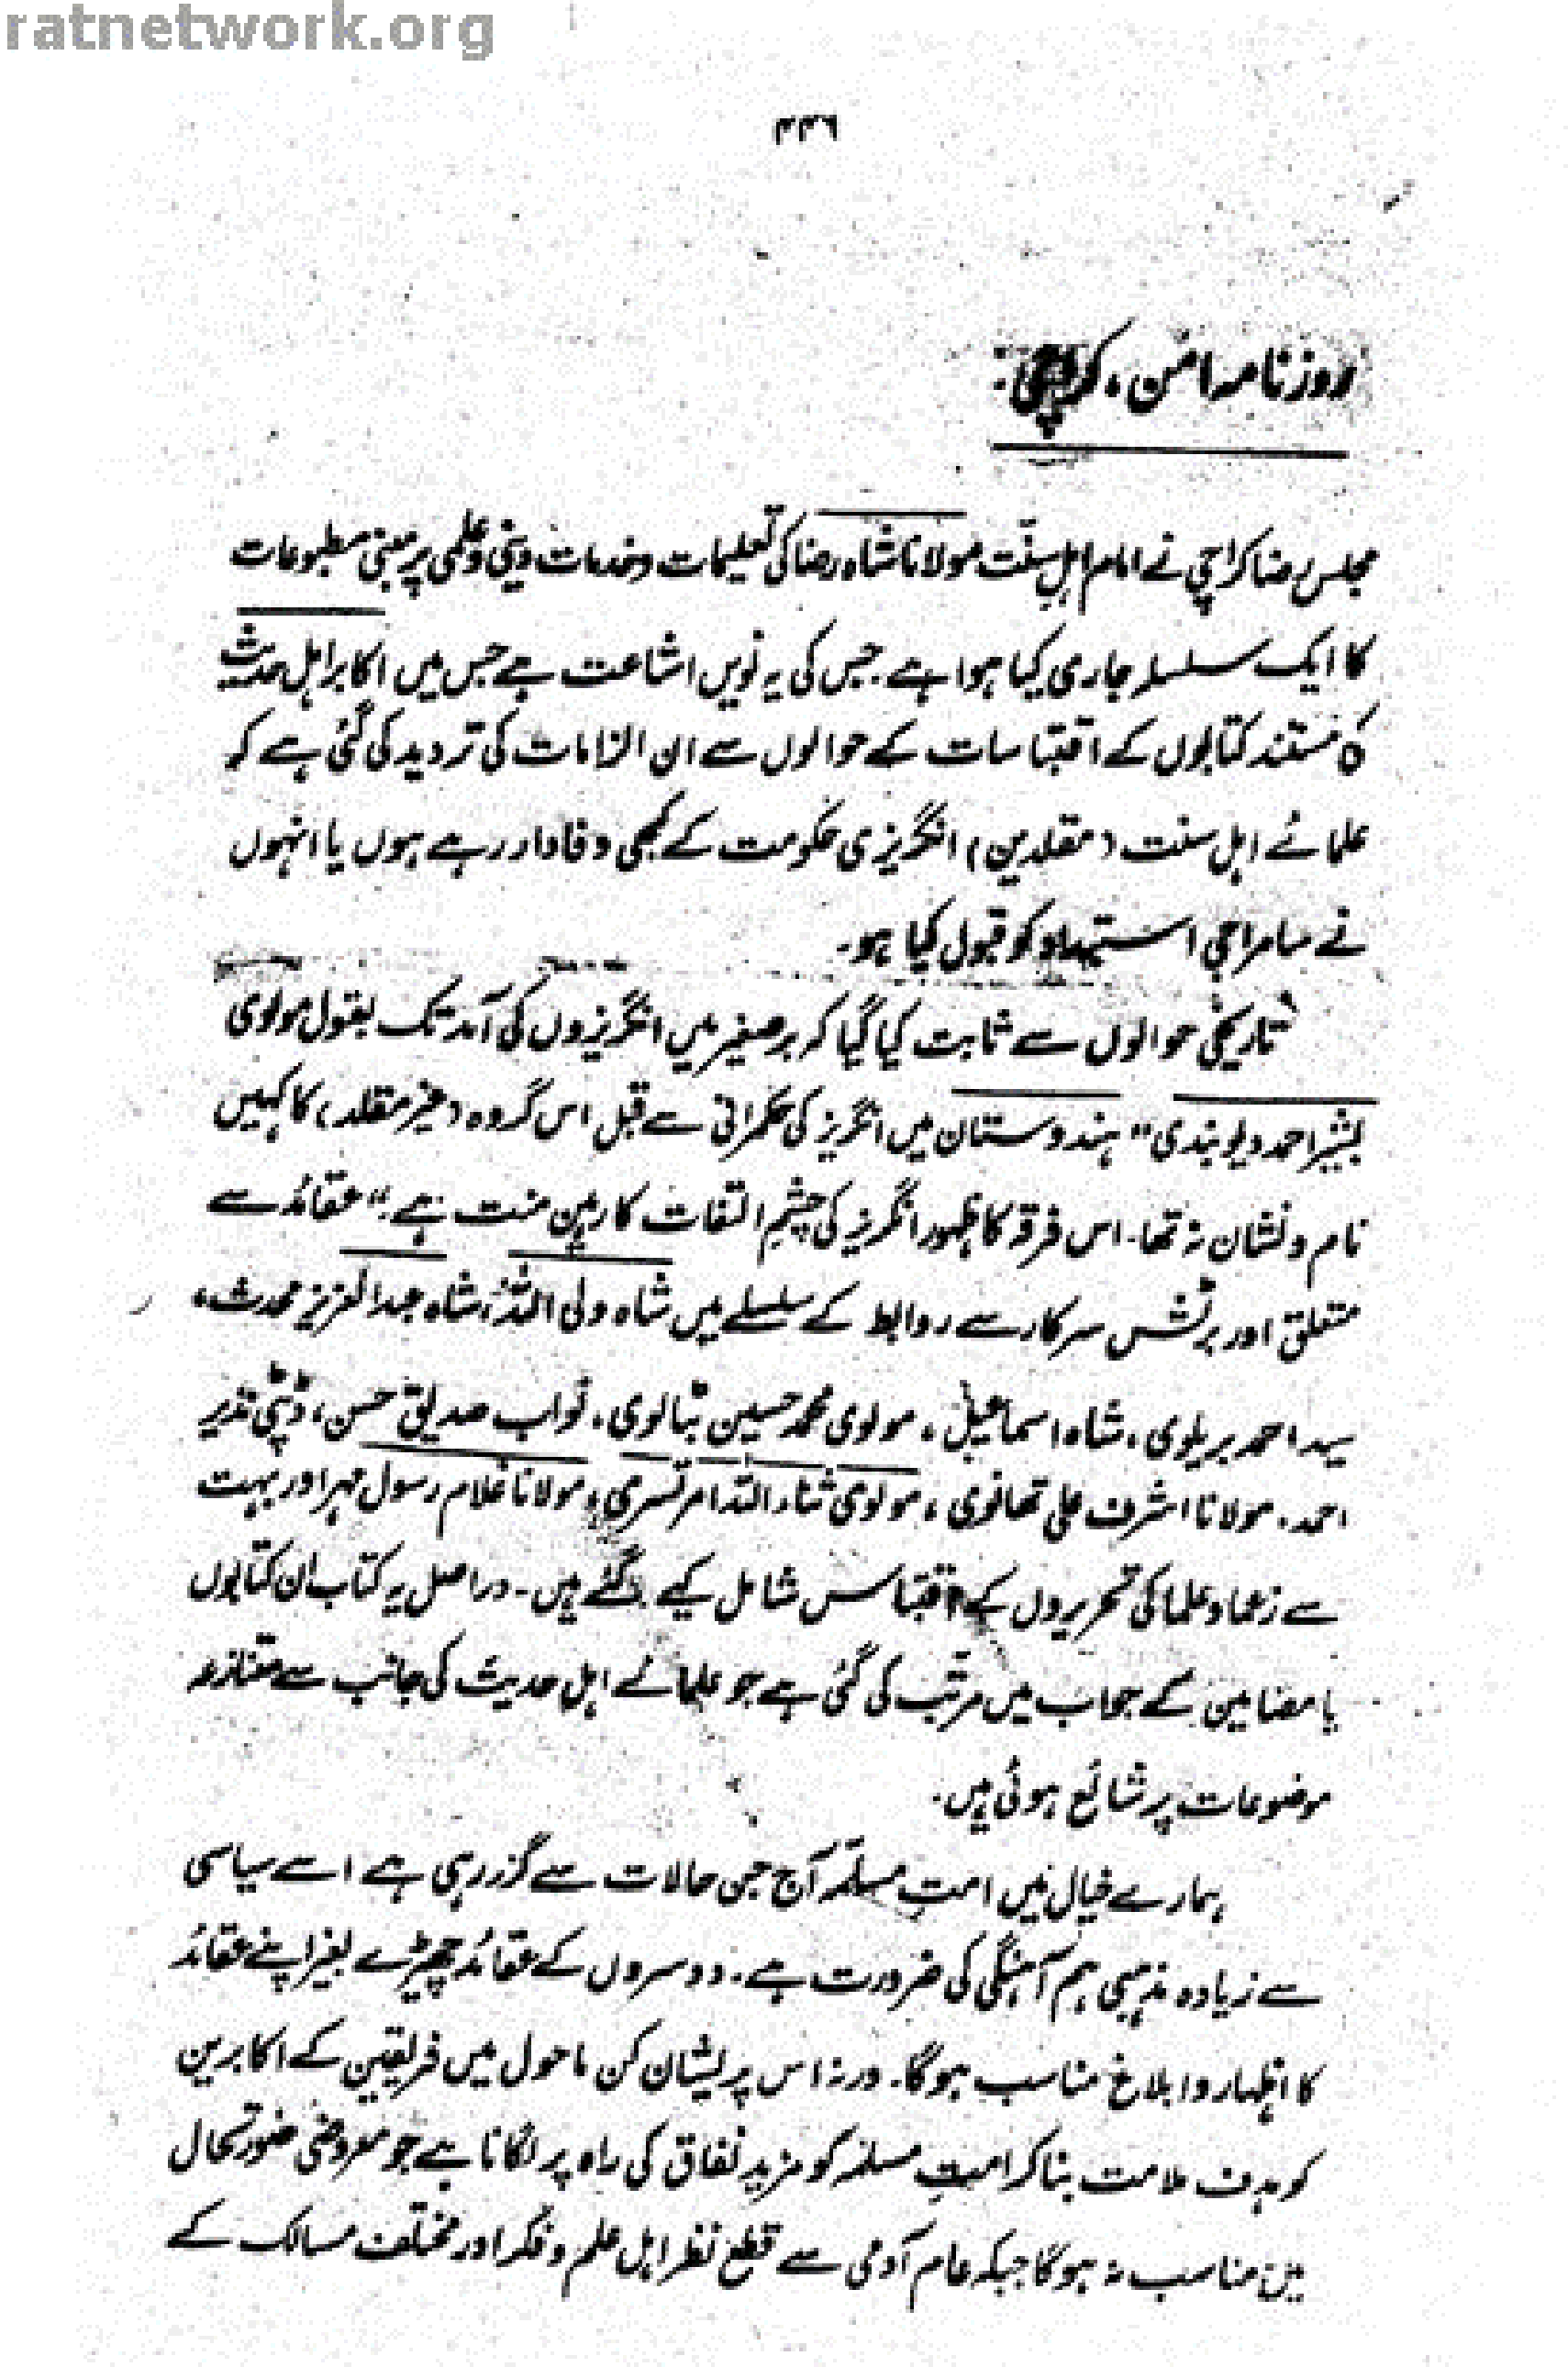 ratnetwork.org
۳۳۶
روزنامہ امن، کراچی:
مجلس رضا کراچی نے امام اہلِ سنّت مولانا شاہ رضا کی تعلیمات و خدمات دینی و علمی پر مبنی مطبوعات
کا ایک سلسلہ جاری کیا ہوا ہے۔ جس کی یہ نویں اشاعت ہے جس میں اکابر اہل حدیث
کی مستند کتابوں کے اقتباسات کے حوالوں سے ان الزامات کی تردید کی گئی ہے کہ
علمائے اہل سنت (مقلدین) انگریزی حکومت کے کبھی وفادار رہے ہوں یا انہوں
نے سامراجی استبداد کو قبول کیا ہو۔
تاریخی حوالوں سے ثابت کیا گیا کہ برصغیر میں انگریزوں کی آمد تک بقول مولوی
بشیر احمد دیوبندی "ہندوستان میں انگریز کی حکمرانی سے قبل اس گروہ (غیر مقلد) کا کہیں
نام و نشان نہ تھا۔ اس فرقہ کا ظہور انگریز کی چشمِ التفات کا رہین منت ہے۔" عقائد سے
متعلق اور برٹش سرکار سے روابط کے سلسلے میں شاہ ولی اللہؒ، شاہ عبدالعزیز محدث،
سید احمد بریلوی، شاہ اسماعیل، مولوی محمد حسین بٹالوی، نواب صدیق حسن، ڈپٹی نذیر
احمد، مولانا اشرف علی تھانوی، مولوی ثناء اللہ امرتسری، مولانا غلام رسول مہر اور بہت
سے زعما و علما کی تحریروں کے اقتباس شامل کیے گئے ہیں۔ دراصل یہ کتاب ان کتابوں
یا مضامین کے جواب میں مرتب کی گئی ہے جو علمائے اہل حدیث کی جانب سے متنازعہ
موضوعات پر شائع ہوئی ہیں۔
ہمارے خیال میں امتِ مسلمہ آج جن حالات سے گزر رہی ہے اسے سیاسی
سے زیادہ مذہبی ہم آہنگی کی ضرورت ہے۔ دوسروں کے عقائد چھیڑے بغیر اپنے عقائد
کا اظہار و ابلاغ مناسب ہوگا۔ ورنہ اس پریشان کن ماحول میں فریقین کے اکابرین
کو ہدف ملامت بنا کر امتِ مسلمہ کو مزید نفاق کی راہ پر لگانا ہے جو معروضی صورتحال
میں مناسب نہ ہوگا جبکہ عام آدمی سے قطع نظر اہل علم و فکر اور مختلف مسالک کے